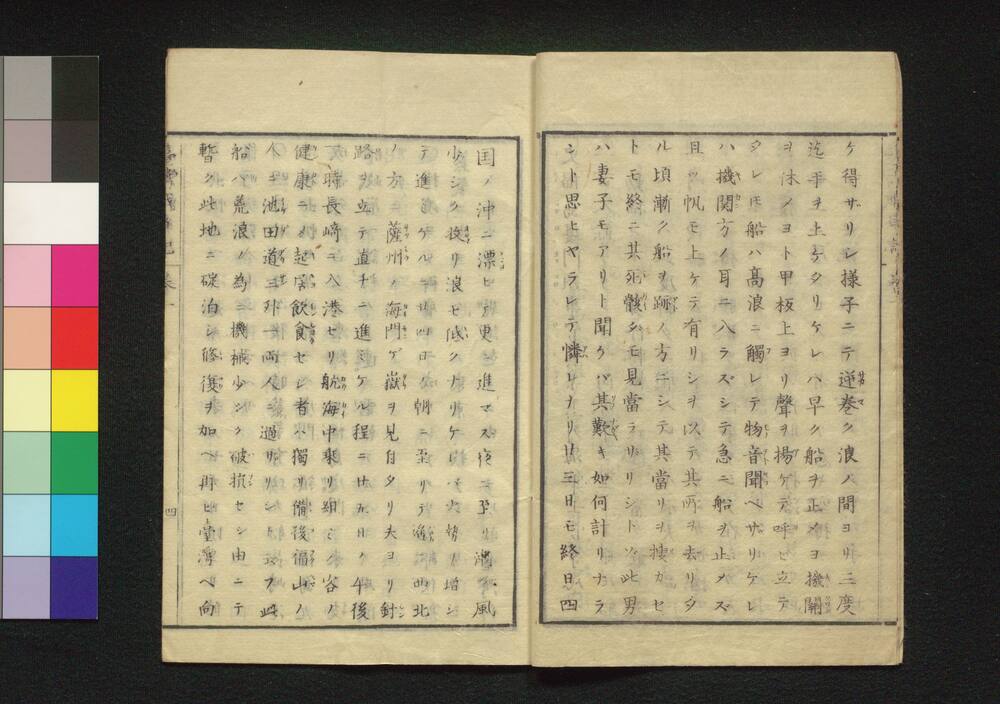 ケ得ザリシ様子ニテ逆巻ク浪ノ間ヨリ三度
迄手ヲ上ケタリケレハ早ク船ヲ止メヨ機関
ヲ休メヨト甲板上ヨリ聲ヲ揚ゲテ呼ビ立テ
タレ𪜈船ハ高浪ニ觸レテ物音聞ヘザリケレ
ハ機関方ノ耳ニ入ラズシテ急ニ船ヲ止メズ
且ツ帆モ上ケテ有リシヲ以テ其所ヲ去リタ
ル頃漸ク船ヲ跡ノ方ニシテ其當リヲ捜カセ
トモ終ニ其死骸タモ見當ラザリシトゾ此男
ハ妻子モアリト聞ケバ其歎キ如何計リナラ
シト思ヒヤラレテ憐レナリ廿三日モ終日四
国ノ沖ニ漂ヒ更ニ進マス夜ニ至リ漸ク風
少シク投リ浪モ低クナリケレバ火勢ヲ増シ
テ進ミケル廿四日ノ朝ニ至リテ西北
ノ方ニ薩州ノ海門ケ嶽ヲ見自タリ夫ヨリ針
路ヲ立テ直チニ進ミケル程ニ廿五日ノ午後
時長﨑ニ入港セリ航海中乗リ組ミ
健康ニメ起居飲食セシ者ハ獨リ備後福山ノ
人池田道三外一両人ニ過ザリシト云フ此
船ハ荒浪ノ為ニ機械少シク破損セシ由ニテ
暫ク此地ニ碇泊シ修復ヲ加ヘ再ヒ臺灣ヘ向
四